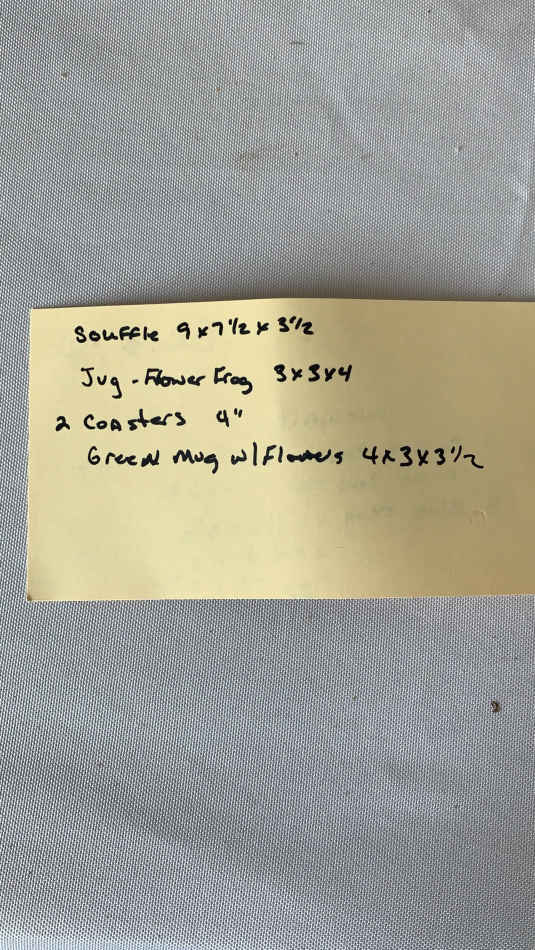 Souffle 9x7 1/2 x 3 1/2
Jug - Flower Frog 3x3x4
2 Coasters 4"
Green Mug w/Flowers 4x3x3 1/2